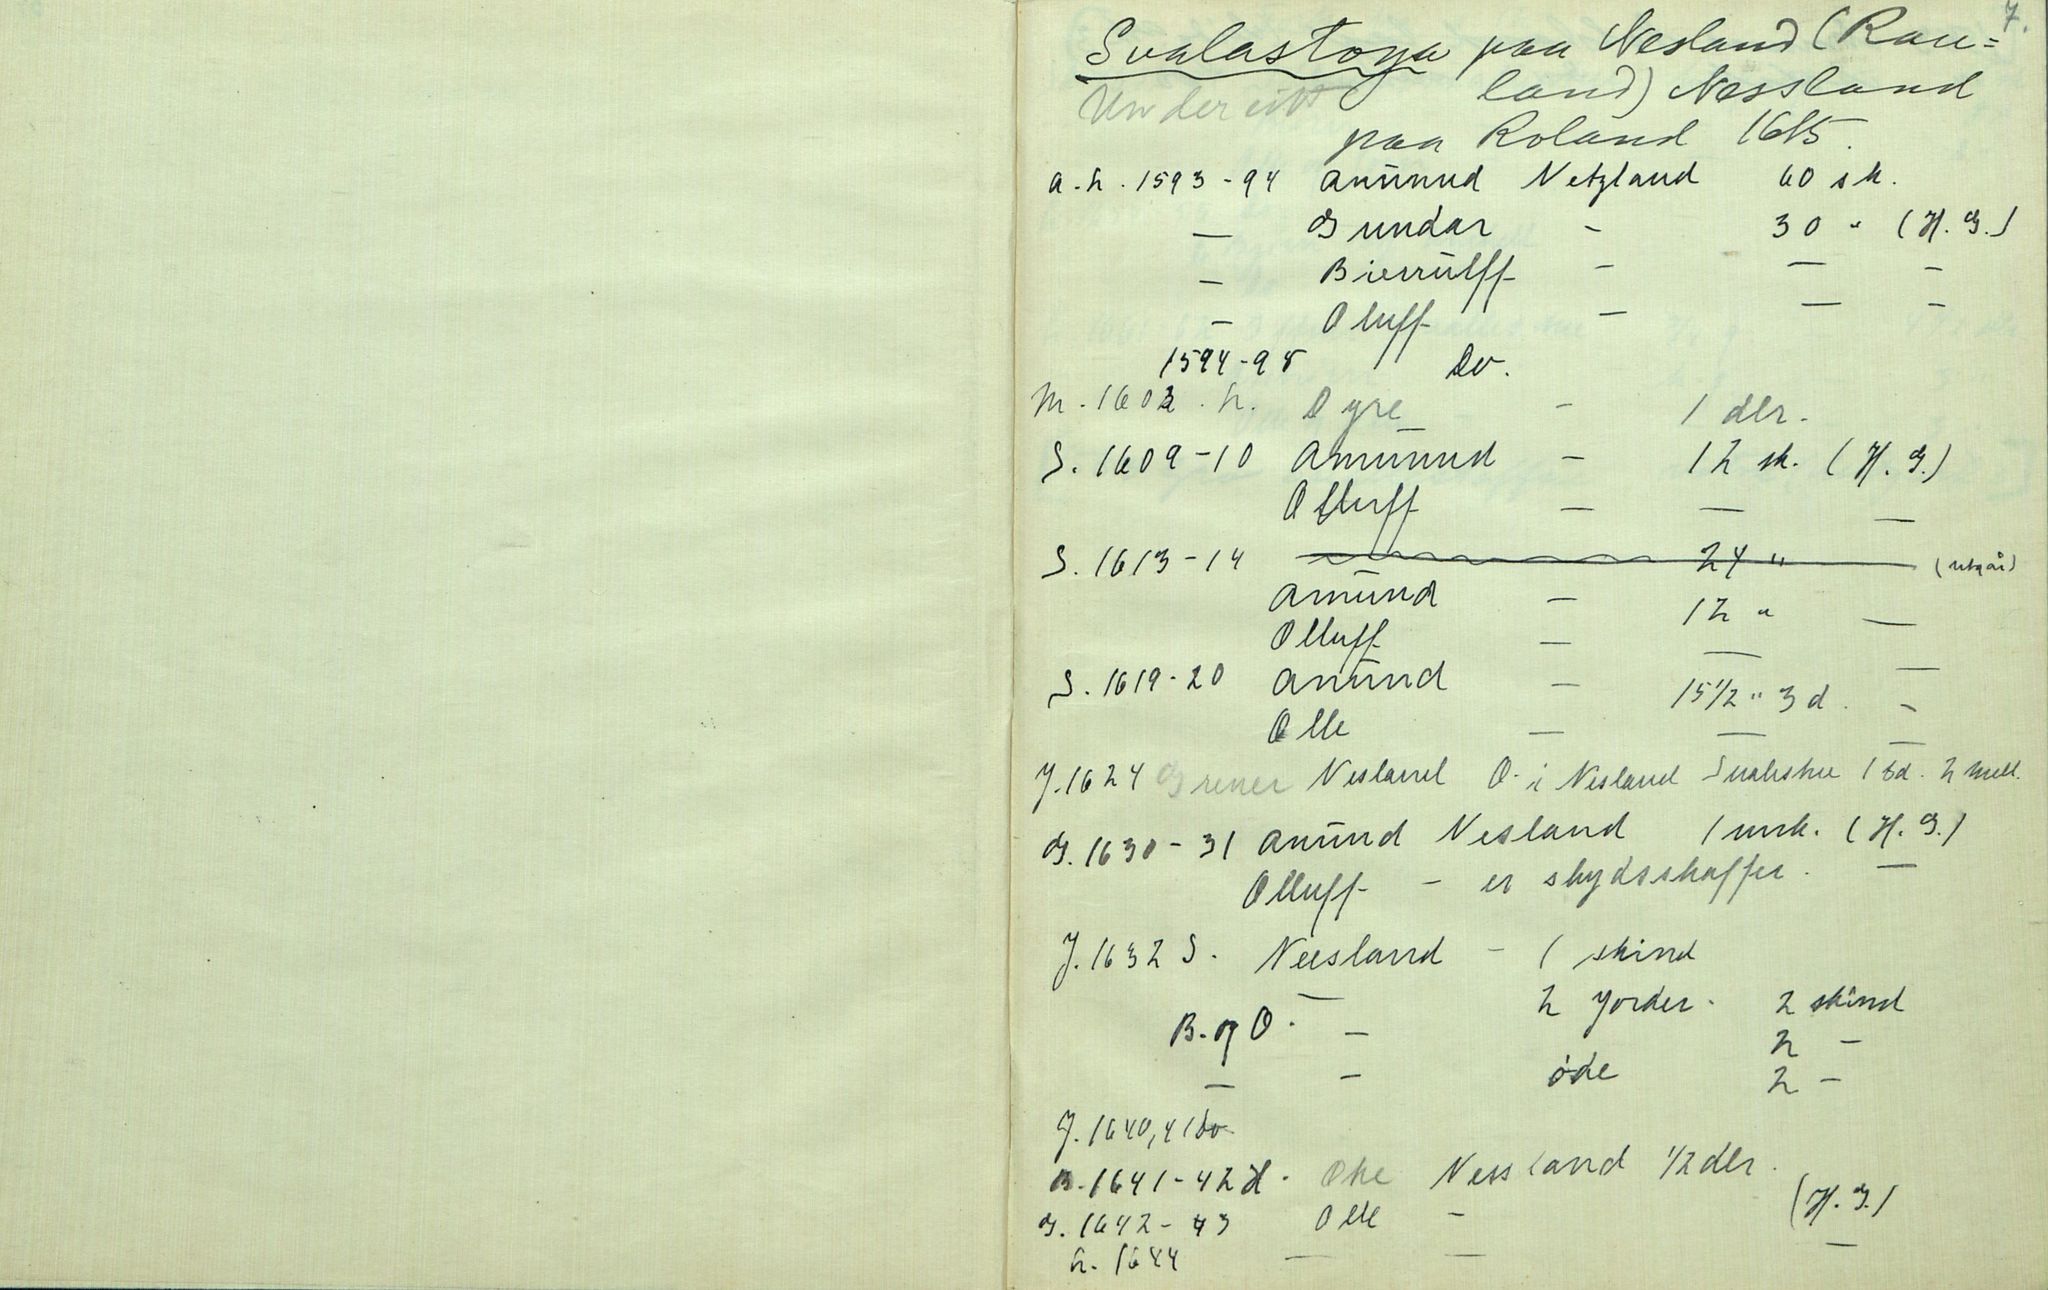 7.
Svalastoga paa Nesland (Rau=
land) Nessland
Under eitt
paa Roland 1615.
a. h. 1593-94 Amūnd Netzland 60 sk.
— Gundar - 30 " (H. G.)
- Bierrūlff - — -
- Oluff - — -
1594-95 Do.
M. 1602. h. Dyre - 1 dlr.
S. 1609-10 Amūnd - 12 sk. (H. G.)
Olluff - — —
S. 1613-14 24 " (utgår)
Amūnd - 12 " —
Olluff - — —
S. 1619-20 Amūnd - 15 1/2 " 3 d. -
Olle — — —
J. 1624 Grener Nesland O. i Nesland Sualestue 1 td. 2 mell.
G. 1630-31 Amūnd Nesland 1 mrk. (H. G.)
Olluff - er skydsskaffer. —
J. 1632 S. Neesland - 1 skind
— 2 Jorder. 2 skind
B. og O. - 2 -
— - øde 2 -
J. 1640, 41 do
B. 1641-42 h. Ole Nessland 1/2 dlr.
G. 1642-43 Olle - (H. G.)
h. 1644 — — —